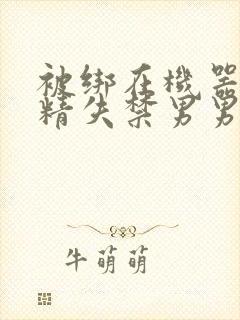 被绑在機器
精失禁男男
牛萌萌